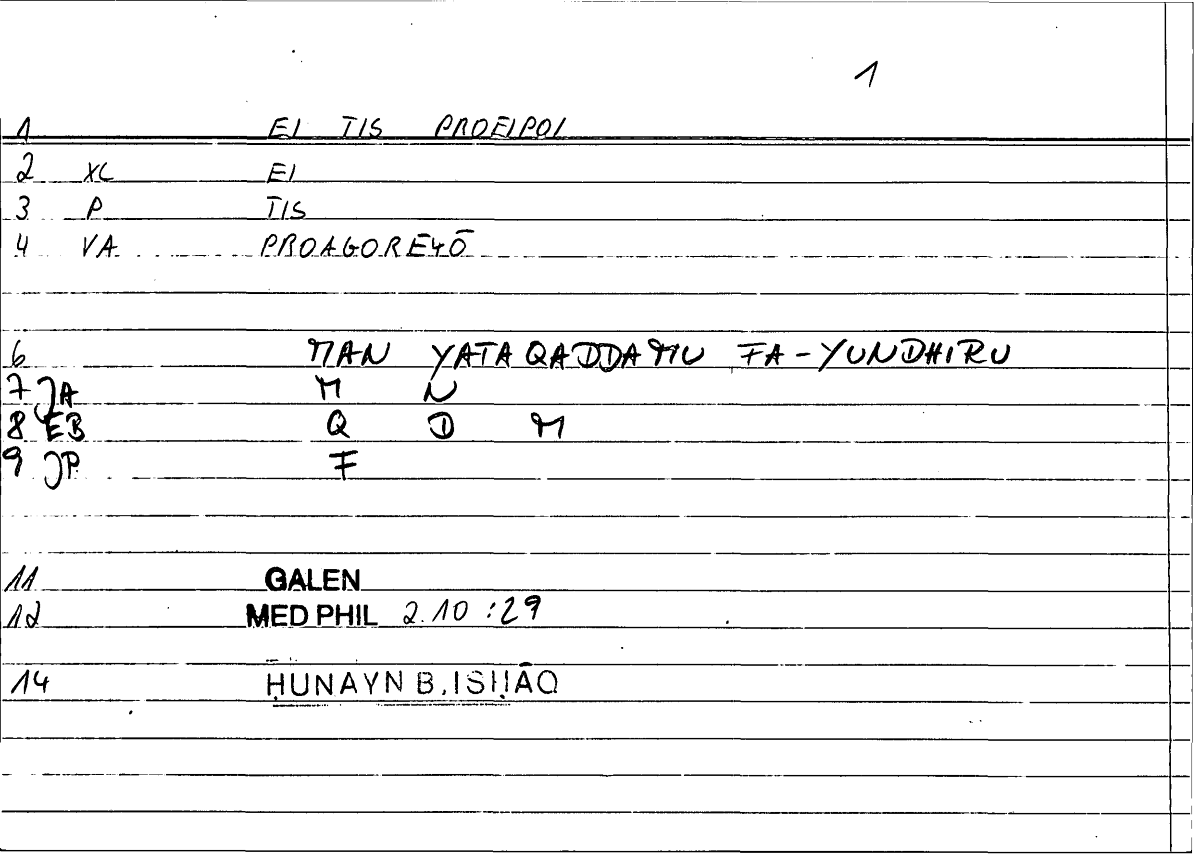 1
1 EI TIS PROEIPOI
2 XC EI
3 P TIS
4 VA PROAGOREYŌ
6 MAN YATAQADDAMU FA-YUNDHIRU
7 JA M N
8 EB Q D M
9 JP F
11 GALEN
12 MED PHIL 2.10 :29
14 ḤUNAYN B. ISḤĀQ